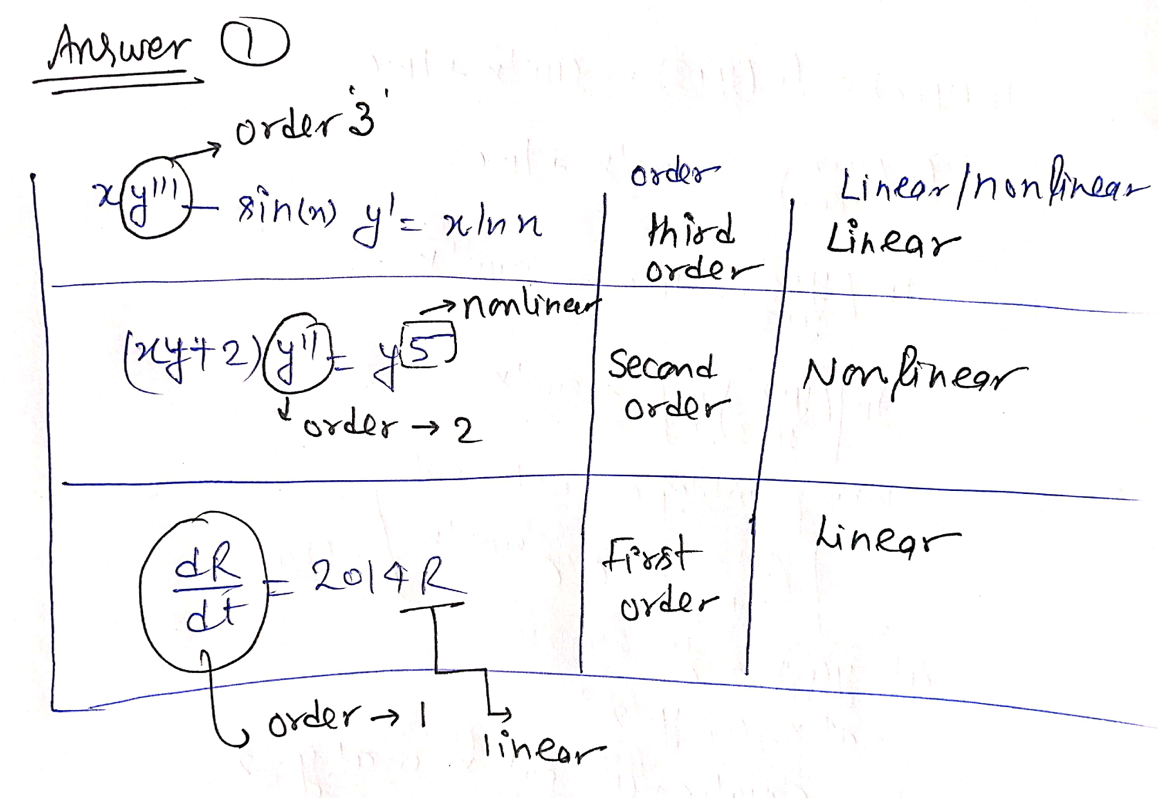 Answer ①
order '3'
order
Linear/nonlinear
x y''' - sin(x) y' = x ln x
third
order
Linear
→ nonlinear
(xy+2) y'' = y^5
Second
order
Nonlinear
order → 2
dR/dt = 2014 R
First
order
Linear
order → 1
linear